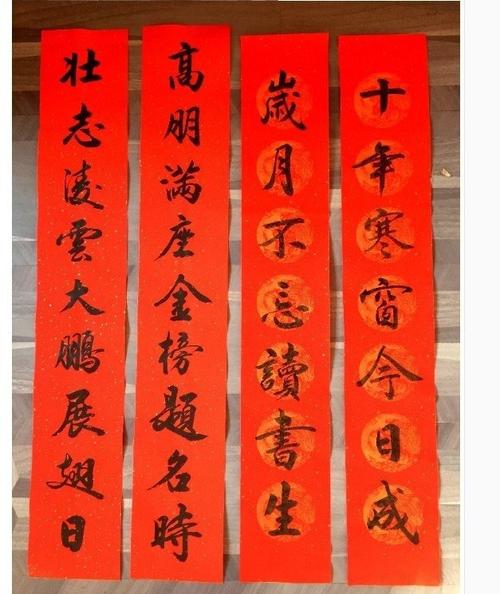 十年寒窗今日成
歲月不忘讀書生
高朋滿座金榜題名時
壯志凌雲大鵬展翅日